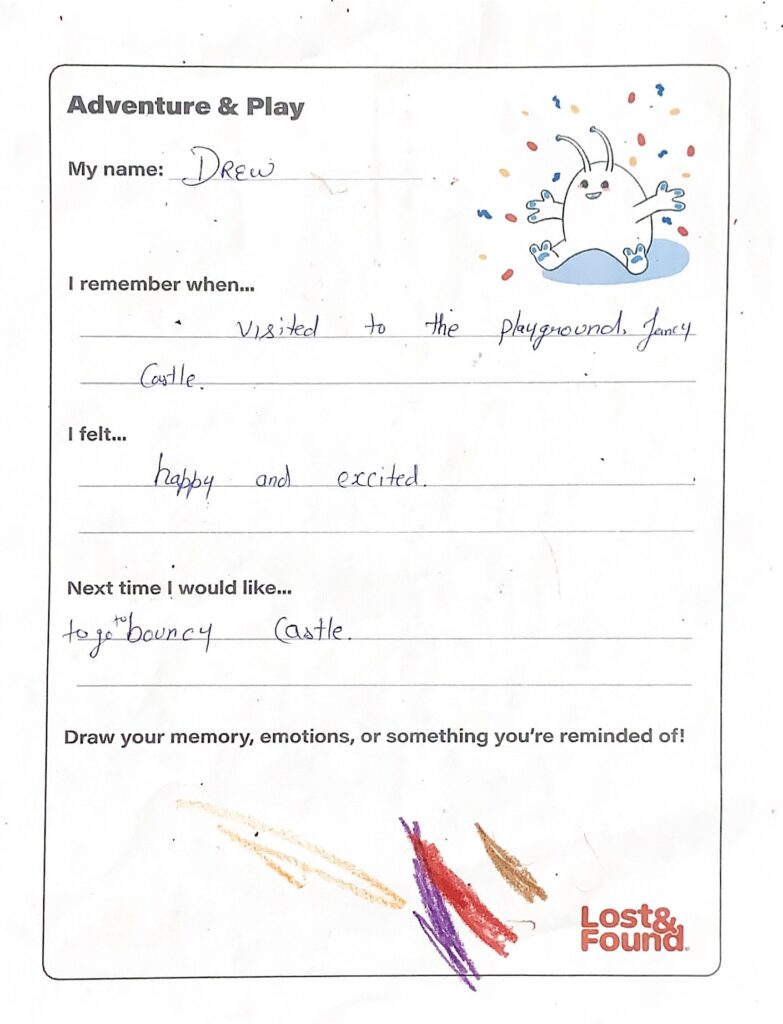 Adventure & Play
My name: DREW
I remember when...
visited to the playground. fancy
Castle.
I felt...
happy and excited.
Next time I would like...
to go to bouncy Castle.
Draw your memory, emotions, or something you're reminded of!
Lost&
Found